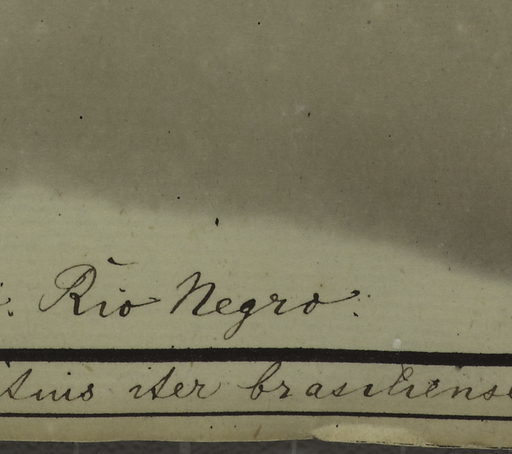 Rio Negro.
iter brasiliense